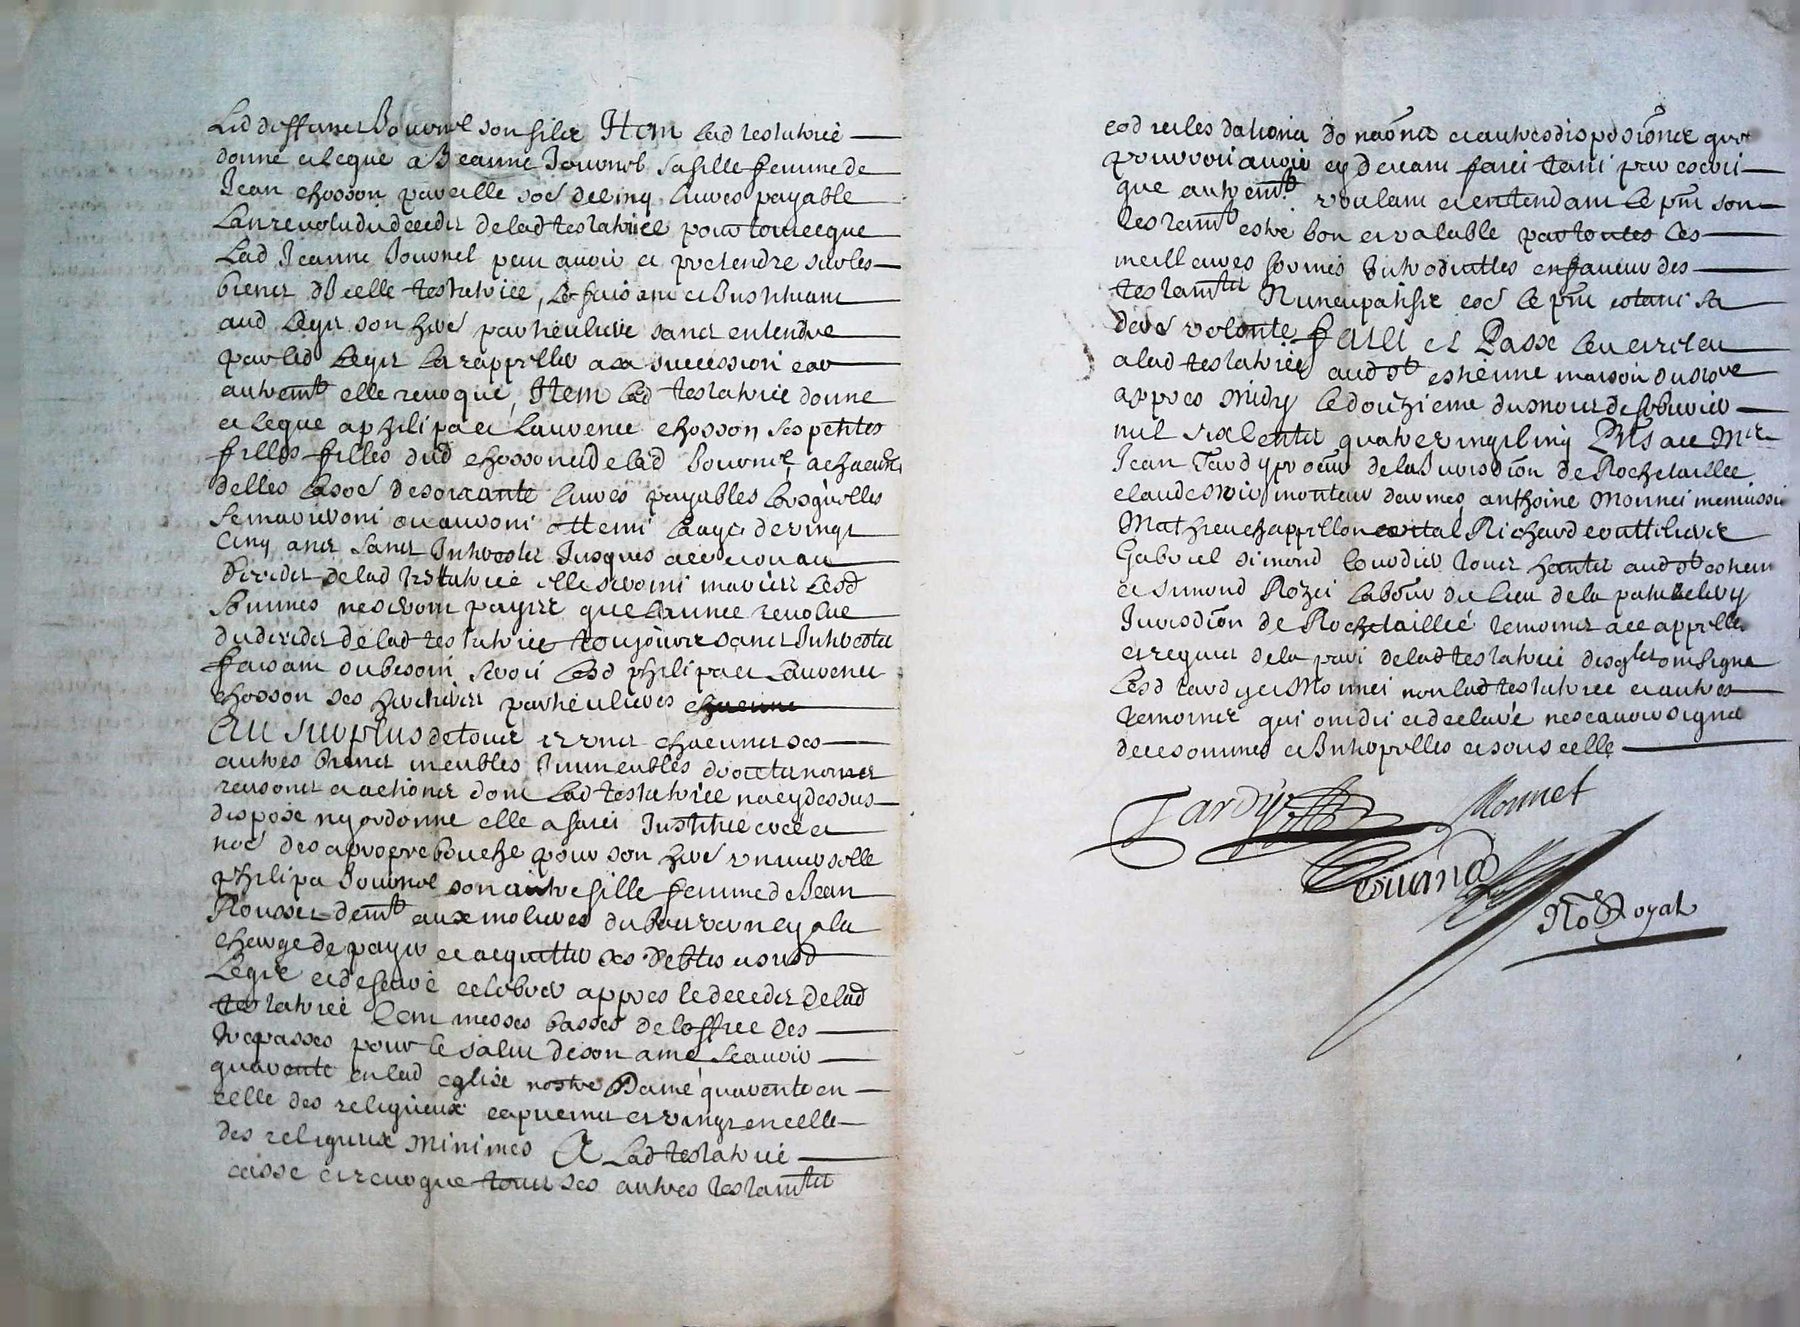 Led deffunct Jouvnel son filz Item lad testatrice
donne et legue a Jeanne Jouvnel sa fille femme de
Jean chosson pareille soe de cinq livres payable
Lan revolu du deceds de lad testatrice pour tout ce que
Lad Jeanne Jouvnel peut avoir et pretendre sur les
biens dicelle testatrice, Le faisant et Instituant
aud Legat son here particuliere sans entendre
par led Legat La rappeller a sa succession car
autremt elle revoque, Item lad testatrice donne
et legue a philipa et Laurence chosson ses petites
filles filles dud chosson et de lad Jouvnel a chacune
delles la soe de soixante livres payables lorsquelles
se marieront ou auront atteint laage de vingt
cinq ans sans Interestz Jusques alors et ou au
deceds de lad testatrice elles seroint mariees Lesd
sommes ne seront payees que lannee revolue
du deceds de lad testatrice toujours sans Interestz
faisant ou besoin seroit Lesd philipa et Laurence
chosson ses heritieres particulieres chacune
Au surplus de tous et uns chacuns ses
autres biens meubles Immeubles droicts noms
raisons et actions dont lad testatrice na cy dessus
dispose ny ordonne elle a faict Instituee cree et
noe de sa propre bouche pour son here universelle
philipa Jouvnel son autre fille femme de Jean
Rousset demt aux molieres du bourg a la
charge de payer et acquitter ses debtes et susd
Legats et de faire celebrer appres le deceds de lad
testatrice Cent messes basses de loffice des
trepasses pour le salut de son ame scavoir
quarente en lad eglise nostre Dame quarente en
celle des religieux capucins et vingt en celle
des religieux Minimes Et Lad testatrice
casse et revoque tous ses autres testamts
codicilles dations donaons et autres disposions que
pourroit avoir cy devant faict tant par escrit
que autremt voulant et entendant le pnt son
testamt estre bon et valable par toutes les
meilleures formes Introduittes en faveur des
testamts Nuncupatifs car le pnt estant sa
dere volonte Faict et Passe leu et releu
a lad testatrice aud st estienne maison du
appres midy le douzieme du mois de febvrier
mil six cents quatre vingt cinq Pnts a ce Mre
Jean Tardy procur de la Jurisdion de Rochetaillee
claude monteur darmes anthoine Monnet menuissier
Mathieu chappellon vital Richard couttelier
Gabriel simond cordier tous habts aud st estienne
et simond Rozet labour du lieu de la
Jurisdion de Rochetaillee temoins a ce appelles
et requis de la part de lad testatrice desqls ont signe
Lesd tardy et Monnet non lad testatrice et autres
temoins qui ont dit et declare ne scavoir signe
de ce sommes et Interpelles et sous celle
Tardy
Monnet
Nore Royal